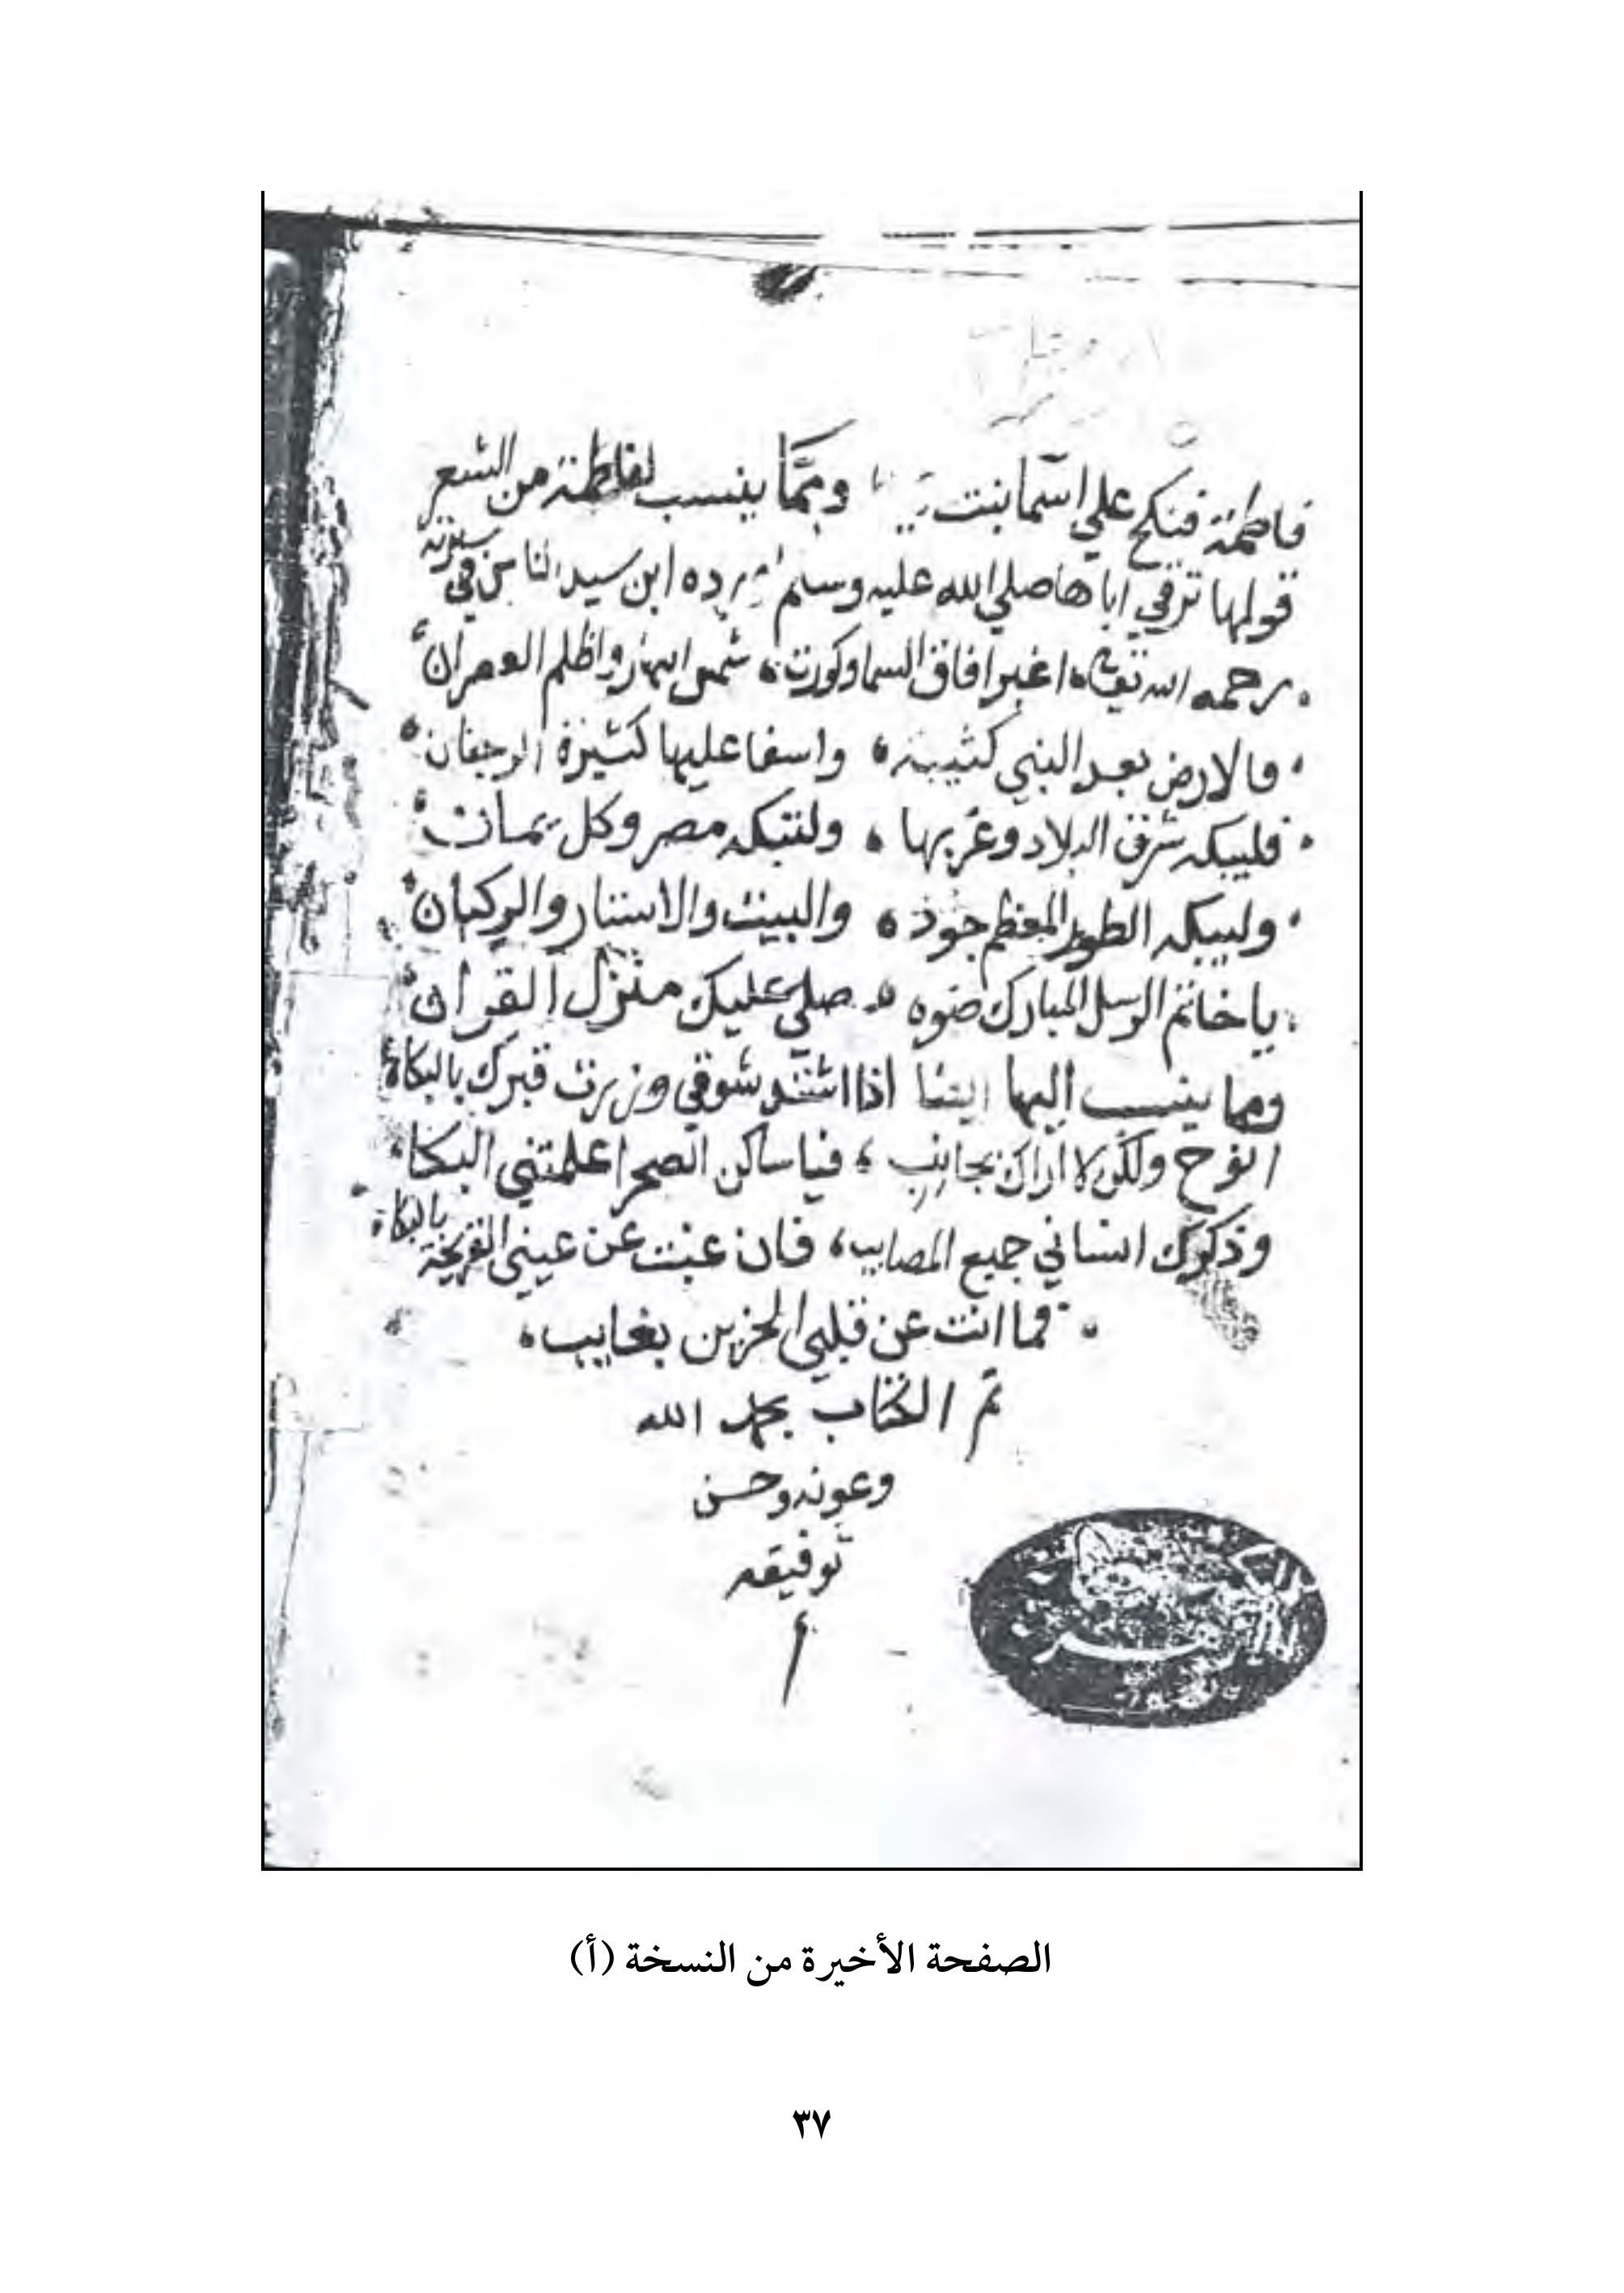 فاطمة فينكح علي اسما بنت ومما ينسب لفاطمة من الشعر
قولها ترثي اباها صلي الله عليه وسلم اورده ابن سيد الناس في سيرته
رحمه الله تعالى اغبر افاق السما وكورت شمس النهار واظلم العصران
فالارض بعد النبي كئيبة واسفا عليها كثيرة الرجفان
فليبكه شرق البلاد وغربها ولتبكه مصر وكل يمان
وليبكه الطور المعظم جوده والبيت والاستار والركبان
ياخاتم الرسل المبارك ضوه صلي عليك منزل القران
ومما ينسب اليها ايضا اذا اشتد شوقي وزرت قبرك بالبكاة
انوح ولكن لا اراك بجانب فيا ساكن الصحرا علمتني البكا
وذكرك انساني جميع المصايب فان غبت عن عيني
فما انت عن قلبي الحزين بغايب
تم الكتاب بحمد الله
وعونه وحسن
توفيقه
الصفحة الأخيرة من النسخة (أ)
٣٧